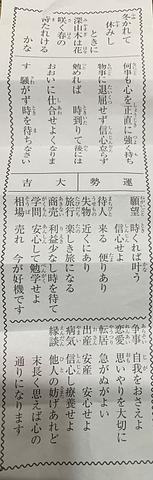 冬かれて
休みし
ときに
深山木は花
咲く春の
またれける
かな
何事も心を正直に強く持ち
物事に退屈せず信心怠らず
勉めれば 時到りて後には
おおいに仕合せよくなります
騒がず時を待ちなさい
運勢 大吉
願望 時くれば叶う
信心せよ
待人 来る 便りあり
失物 近くにあり
旅行 楽しき旅になる
商売 利益少なし時を待て
学問 安心して勉学せよ
相場 売れ 今が好機です
争事 自我をおさえよ
恋愛 思いやりを大切に
転居 急がぬがよい
出産 安産 安心せよ
病気 信心し療養せよ
縁談 他人の妨げあれど
末長く思えば心の
通りになります